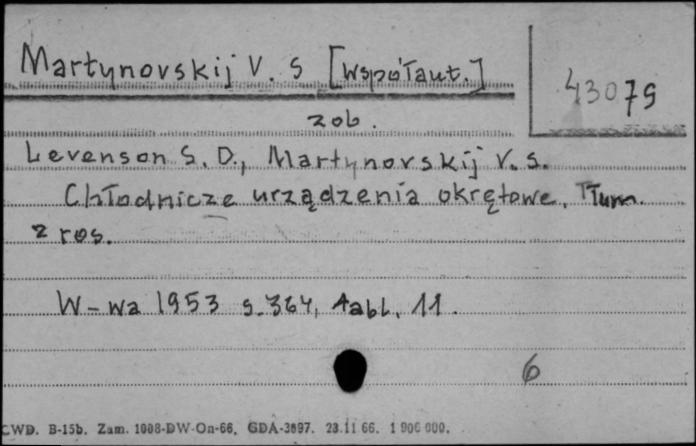 Martynovskij V. S [współaut.]
43079
zob.
Levenson S. D., Martynovskij V. S.
Chłodnicze urządzenia okrętowe. Tłum.
z ros.
W-wa 1953 s. 364, tabl. 11.
6
CWD. B-15b. Zam. 1008-DW-On-66. GDA-3897. 23.11 66. 1 900 000.